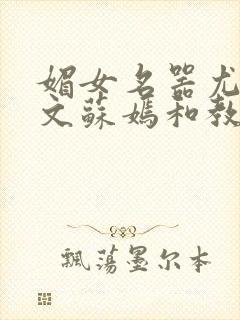 媚女名器尤
文蘇媽和教
飄蕩墨尔本